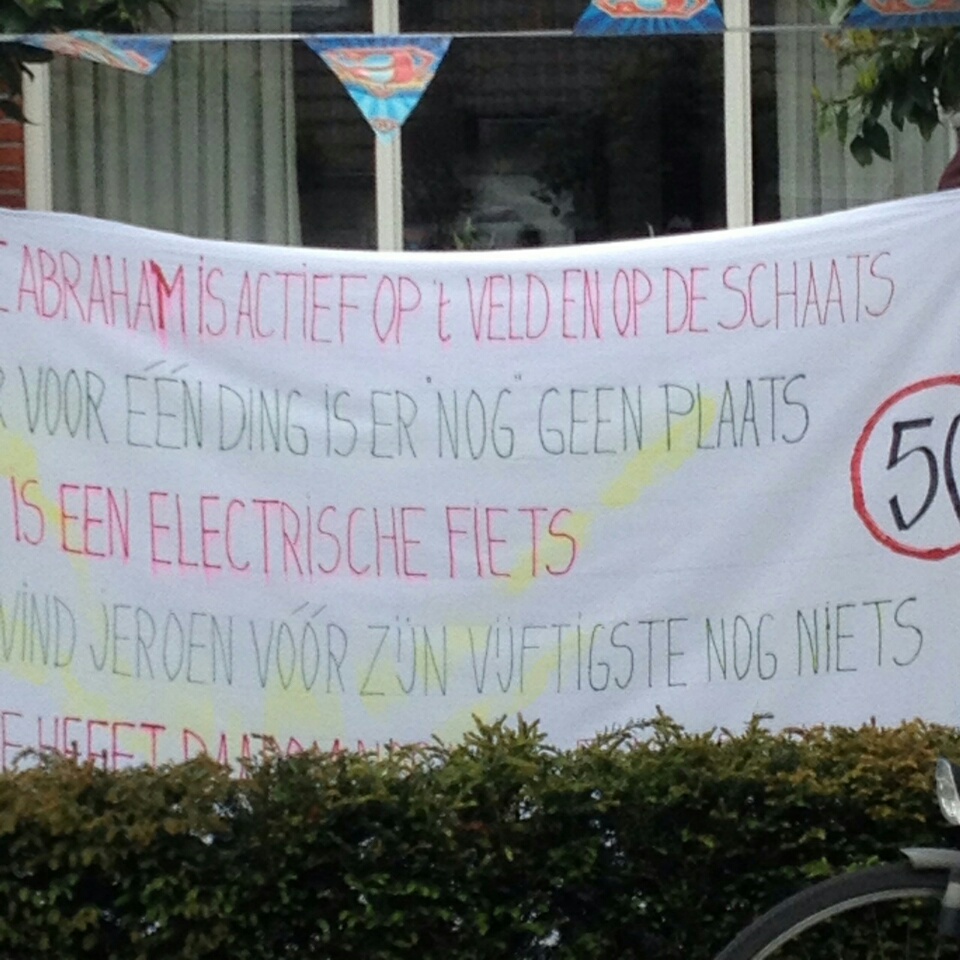 ABRAHAM iS ACTiEF OP 't VELD EN OP DE SCHAATS
VOOR ÉÉN DING IS ER "NOG" GEEN PLAATS
50
IS EEN ELECTRiSCHE FIETS
VIND JEROEN VÓÓR ZIJN VIJFTIGSTE NOG NIETS
HEEFT